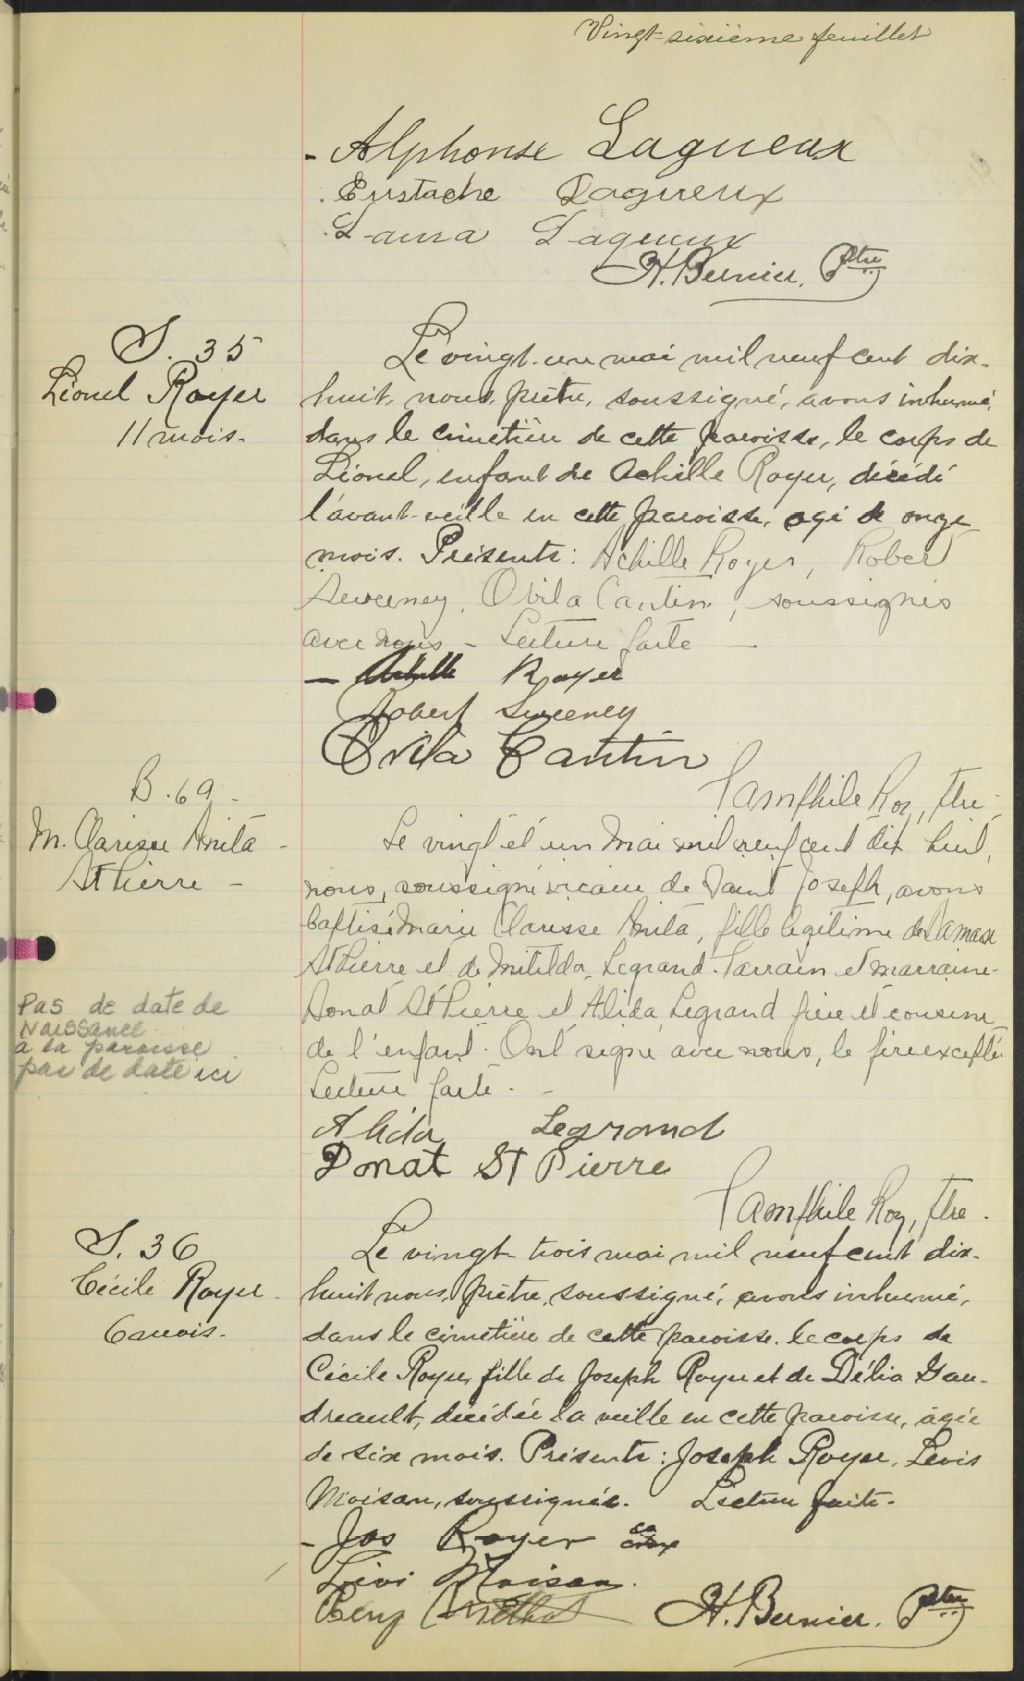 Vingt-sixième feuillet
- Alphonse Lagueux
Eustache Lagueux
Laura Lagueux
H. Bernier, Ptre
S. 35
Lionel Royer
11 mois.
Le vingt-un mai mil neuf cent dix-
huit, nous, prêtre, soussigné, avons inhumé,
dans le cimetière de cette paroisse, le corps de
Lionel, enfant de Achille Royer, décédé
l'avant-veille en cette paroisse, agé de onze
mois. Présents: Achille Royer, Robert
Sweeney, Ovila Cantin, soussignés
avec nous - Lecture faite -
- Achille Royer
Robert Sweeney
Ovila Cantin
Pamphile Roy, ptre.
B. 69.
M. Clarisse Anita
St Pierre -
Le vingt et un Mai mil neuf cent dix huit,
nous, soussigné vicaire de Saint Joseph, avons
baptisé Marie Clarisse Anita, fille légitime de Damase
St Pierre et de Mitilda Legrand. Parrain et marraine
Donat St Pierre et Alida Legrand frère et cousine
de l'enfant. Ont signé avec nous, le père excepté.
Lecture faite. -
Pas de date de
Naissance
a la paroisse
pas de date ici
Alida Legrand
Donat St Pierre
Pamphile Roy, ptre.
S. 36
Cécile Royer.
6 mois.
Le vingt-trois mai mil neuf cent dix-
huit nous, prêtre, soussigné, avons inhumé,
dans le cimetière de cette paroisse, le corps de
Cécile Royer, fille de Joseph Royer et de Délia Gau-
dreault, décédée la veille en cette paroisse, agée
de six mois. Présents: Joseph Royer, Levis
Moisan, soussignés. Lecture faite.
- Jos Royer sa croix
Livi Moisan.
H. Bernier. Ptre